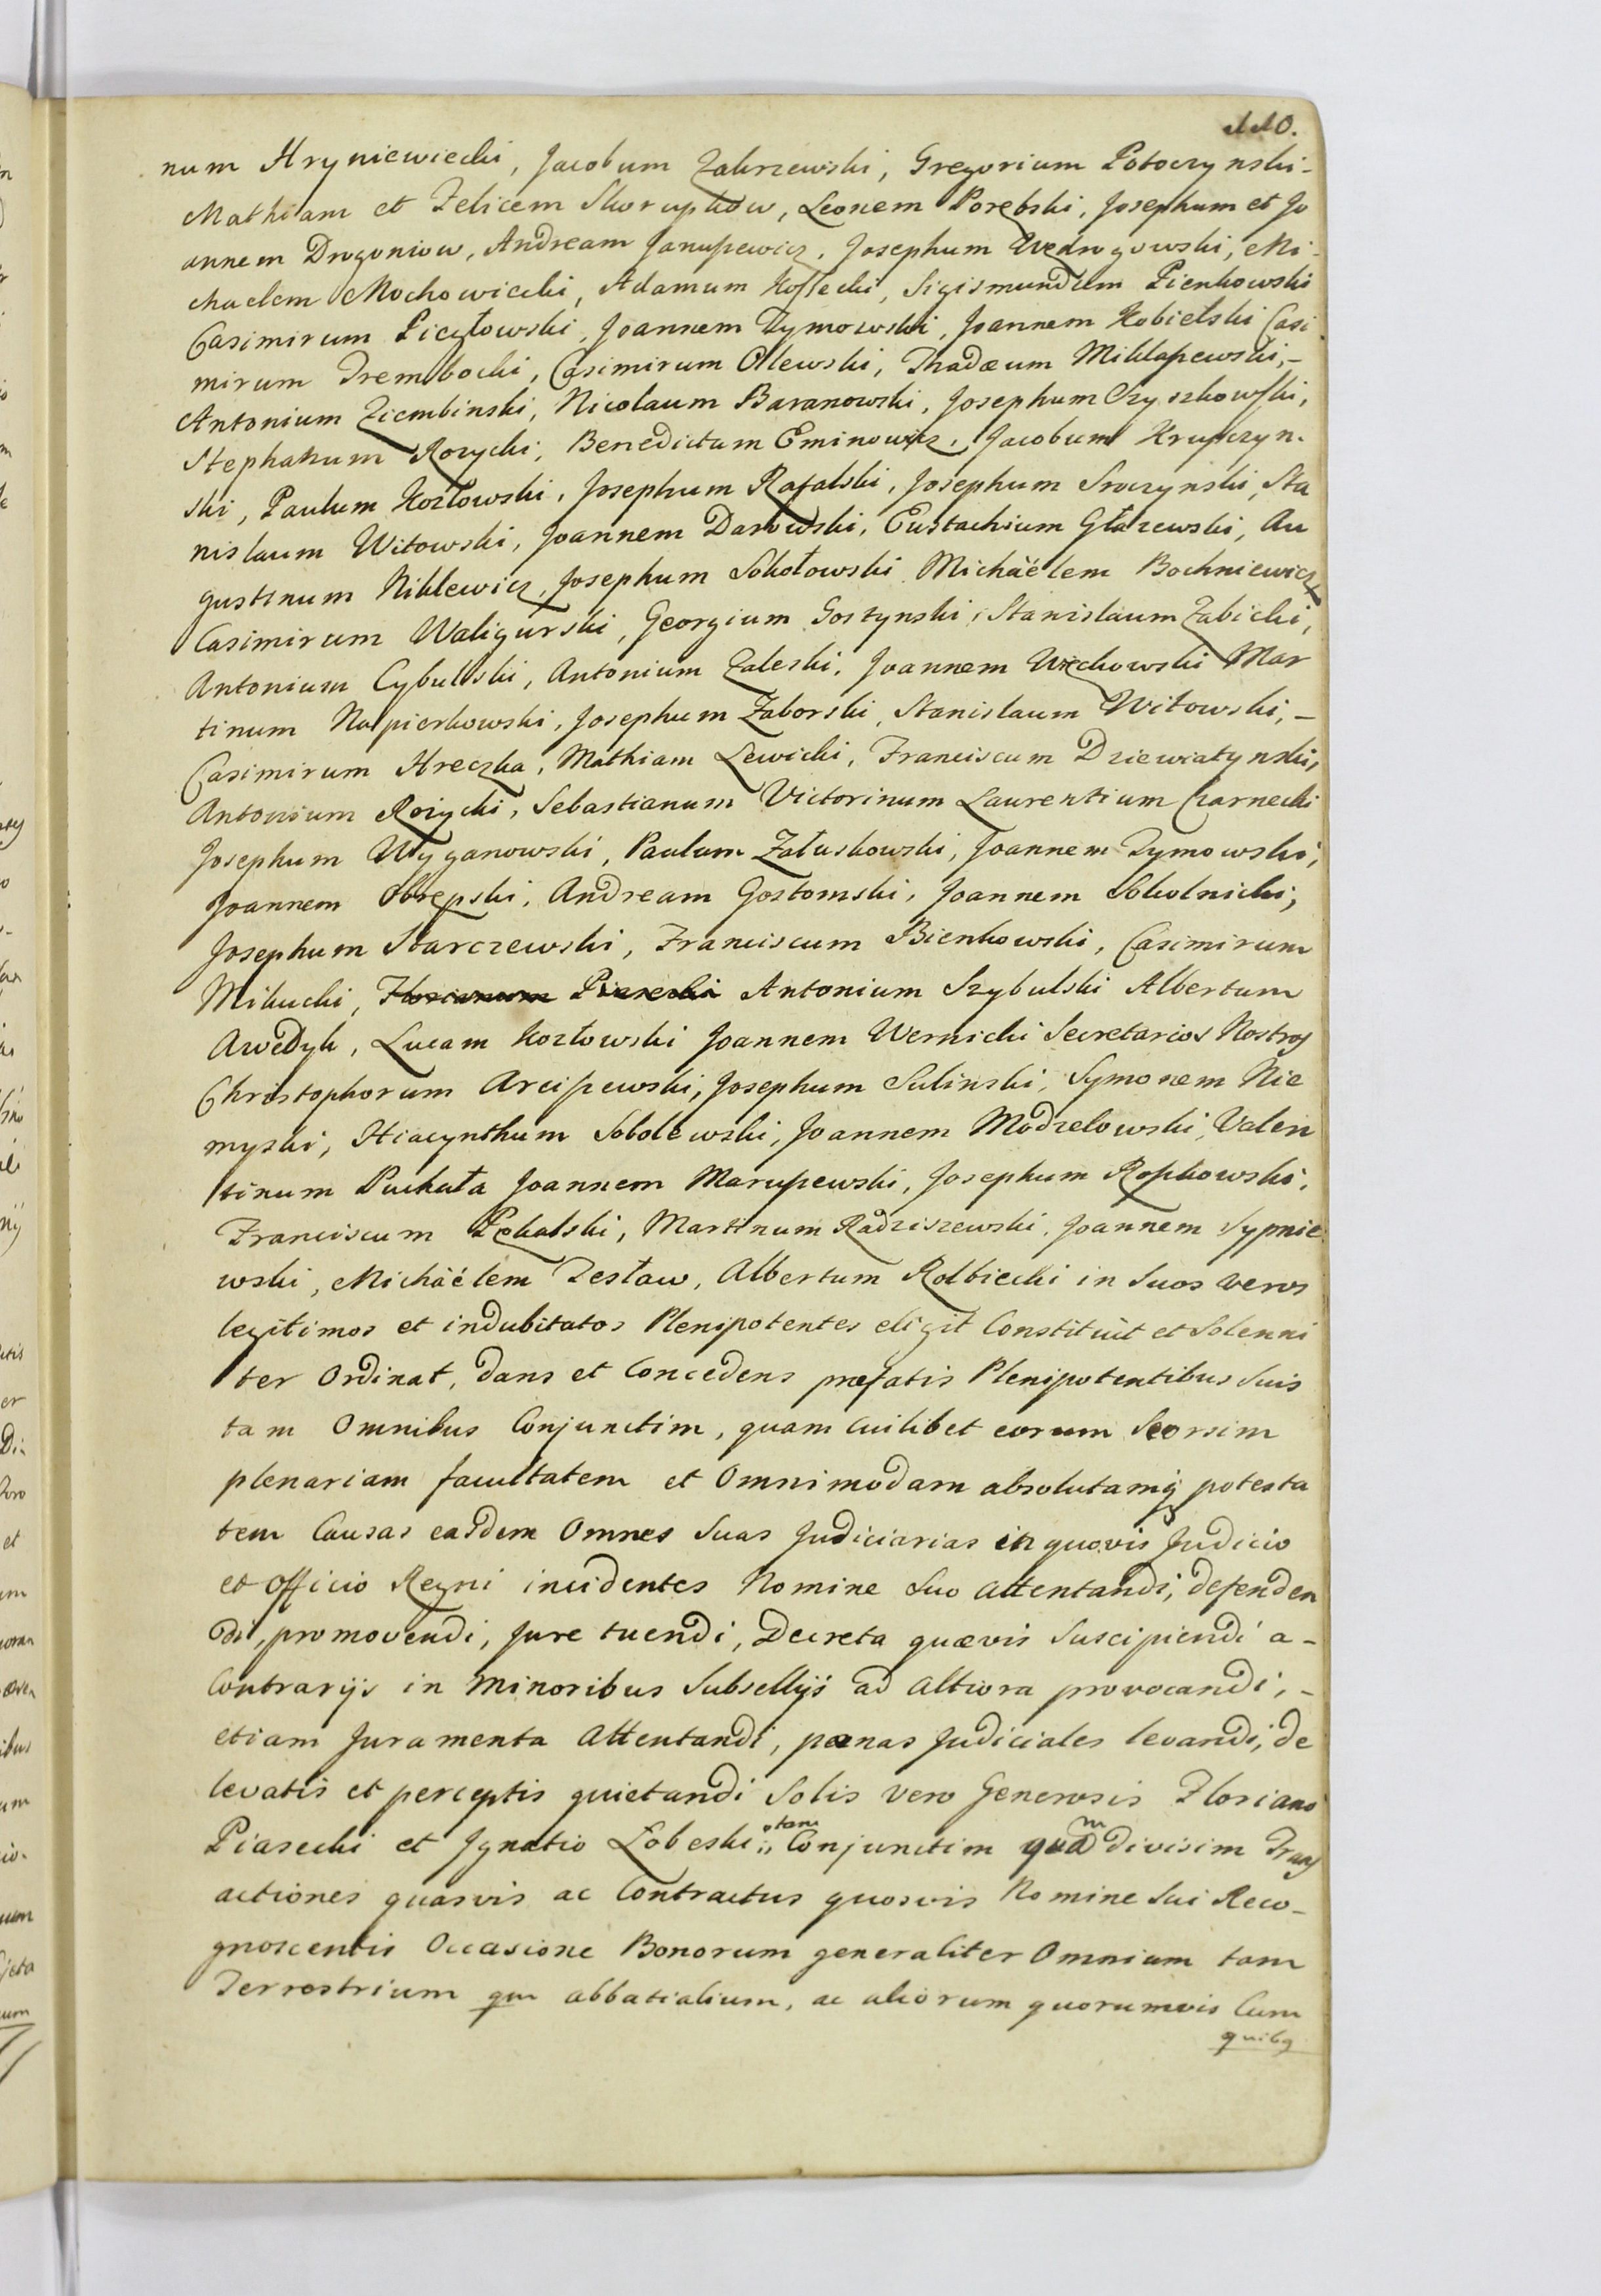 110.
num Hryniewiecki, Jacobum Zakrzewski, Gregorium Potoczynski-
Mathiam et Felicem Skorupkow, Leonem Porębski, Josephum et Jo
annem Drogoniow, Andream Januszewicz, Josephum Wędrogowski, Mi-
chaelem Mochowiecki, Adamum Kossecki, Sigismundum Pienkowski
Casimirum Piczłowski, Joannem Dymowski, Joannem Kobielski Casi
mirum Trembocki, Casimirum Olewski, Thadæum Miklaszewski,-
Antonium Ziembinski, Nicolaum Baranowski, Josephum Czyszkowski,
Stephanum Rozycki, Benedictum Eminowicz, Jacobum Krupczyn-
ski, Paulum Kozłowski, Josephum Rafalski, Josephum Sroczynski, Sta
nislaum Witowski, Joannem Darowski, Eustachium Głazewski, Au
gustinum Niklewicz, Josephum Sokołowski Michäélem Bochniewicz
Casimirum Waligurski, Georgium Gostynski, Stanislaum Zabicki,
Antonium Cybulski, Antonium Zaleski, Joannem Więckowski Mar
tinum Napierkowski, Josephum Zaborski, Stanislaum Witowski,-
Casimirum Hreczka, Mathiam Lewicki, Franciscum Dziewiatynski,
Antonium Rozycki, Sebastianum Victorinum Laurentium Czarnecki
Josephum Wyganowski, Paulum Załuskowski, Joannem Dymowski,
Joannem Obrępski, Andream Gostomski, Joannem Sokolnicki,
Josephum Starczewski, Franciscum Bienkowski, Casimirum
Mikucki, Florianum Piasecki Antonium Szybulski Albertum
Awedyk, Lucam Kozłowski Joannem Wernicki Secretarios Nostros
Christophorum Arciszewski, Josephum Sulinski, Symonem Nie
myski, Hiacynthum Sobolewski, Joannem Modzelowski, Valen
tinum Puchała Joannem Maruszewski, Josephum Ropkowski,
Franciscum Pękalski, Martinum Radziszewski, Joannem Sypnie
wski, Michäélem Zesław, Albertum Rolbiecki in Suos veros
legitimos et indubitatos Plenipotentes eligit Constituit et Solenni
ter Ordinat, dans et Concedens præfatis Plenipotentibus Suis
tam Omnibus Conjunctim, quam Cuilibet eorum Seorsim
plenariam facultatem et Omnimodam absolutamq́ potesta
tem Causas easdem Omnes Suas Judiciarias in quovis Judicio
et Officio Regni incidentes Nomine Suo Attentandi, defenden
di, promovendi, Jure tuendi, Decreta quævis Suscipiendi a-
Contrarijs in Minoribus Subsellijs ad Altiora provocandi,-
etiam Juramenta Attentandi, pœnas Judiciales levandi, de
levatis et perceptis quietandi Solis vero Generosis Floriano
Piasecki et Ignatio Łobeski tam Conjunctim quam divisim Trans
actiones quasvis ac Contractus quosvis Nomine Sui Reco-
gnoscentis Occasione Bonorum generaliter Omnium tam
Terrestrium qm abbatialium, ac aliorum quorumvis Cum
quibq